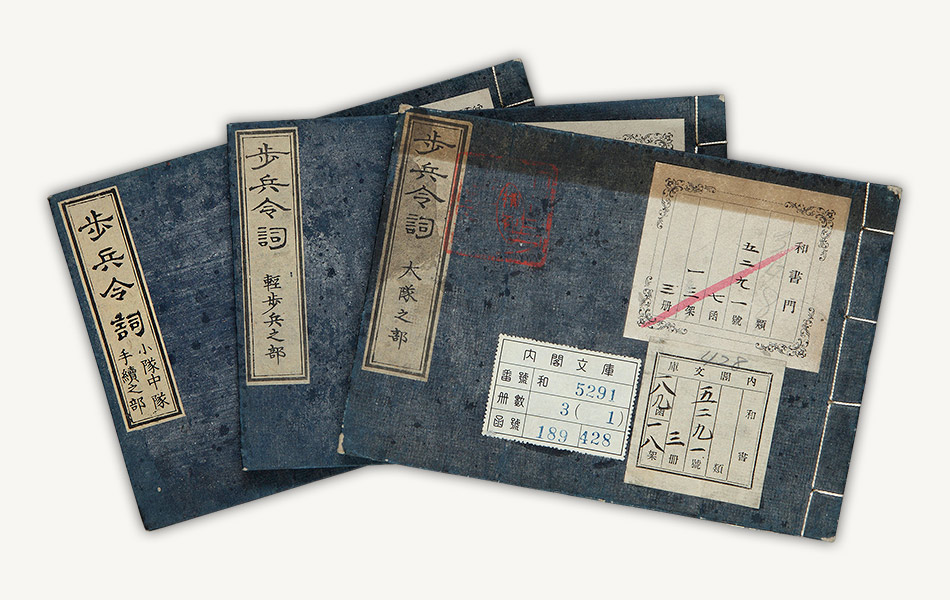 歩兵令詞
小隊中隊
手續之部
歩兵令詞
輕歩兵之部
歩兵令詞
大隊之部
和書門
類
五二九一號
七函
一三架
三册
428
内閣文庫
番號 和 5291
册數 3(1)
函號 189 428
内閣文庫
和書
類
五二九一號
三册
八九函
一八架